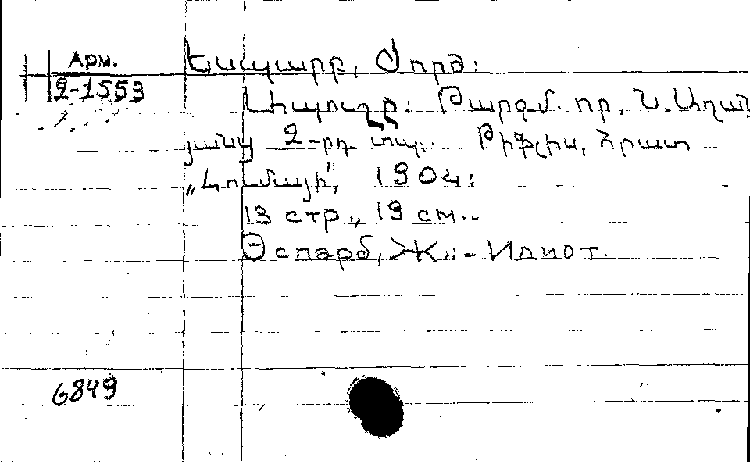 Арм.
2-1553
Եսպարբ, Ժորժ:
Լիպուղը: Թարգմ. որ, Ն. Աղան
յանց 2-րդ տպ. Թիֆլիս, Հրատ
„Նումայի, 1904:
13 стр., 19 см..
Эспарб, Ж.: - Идиот.
6849